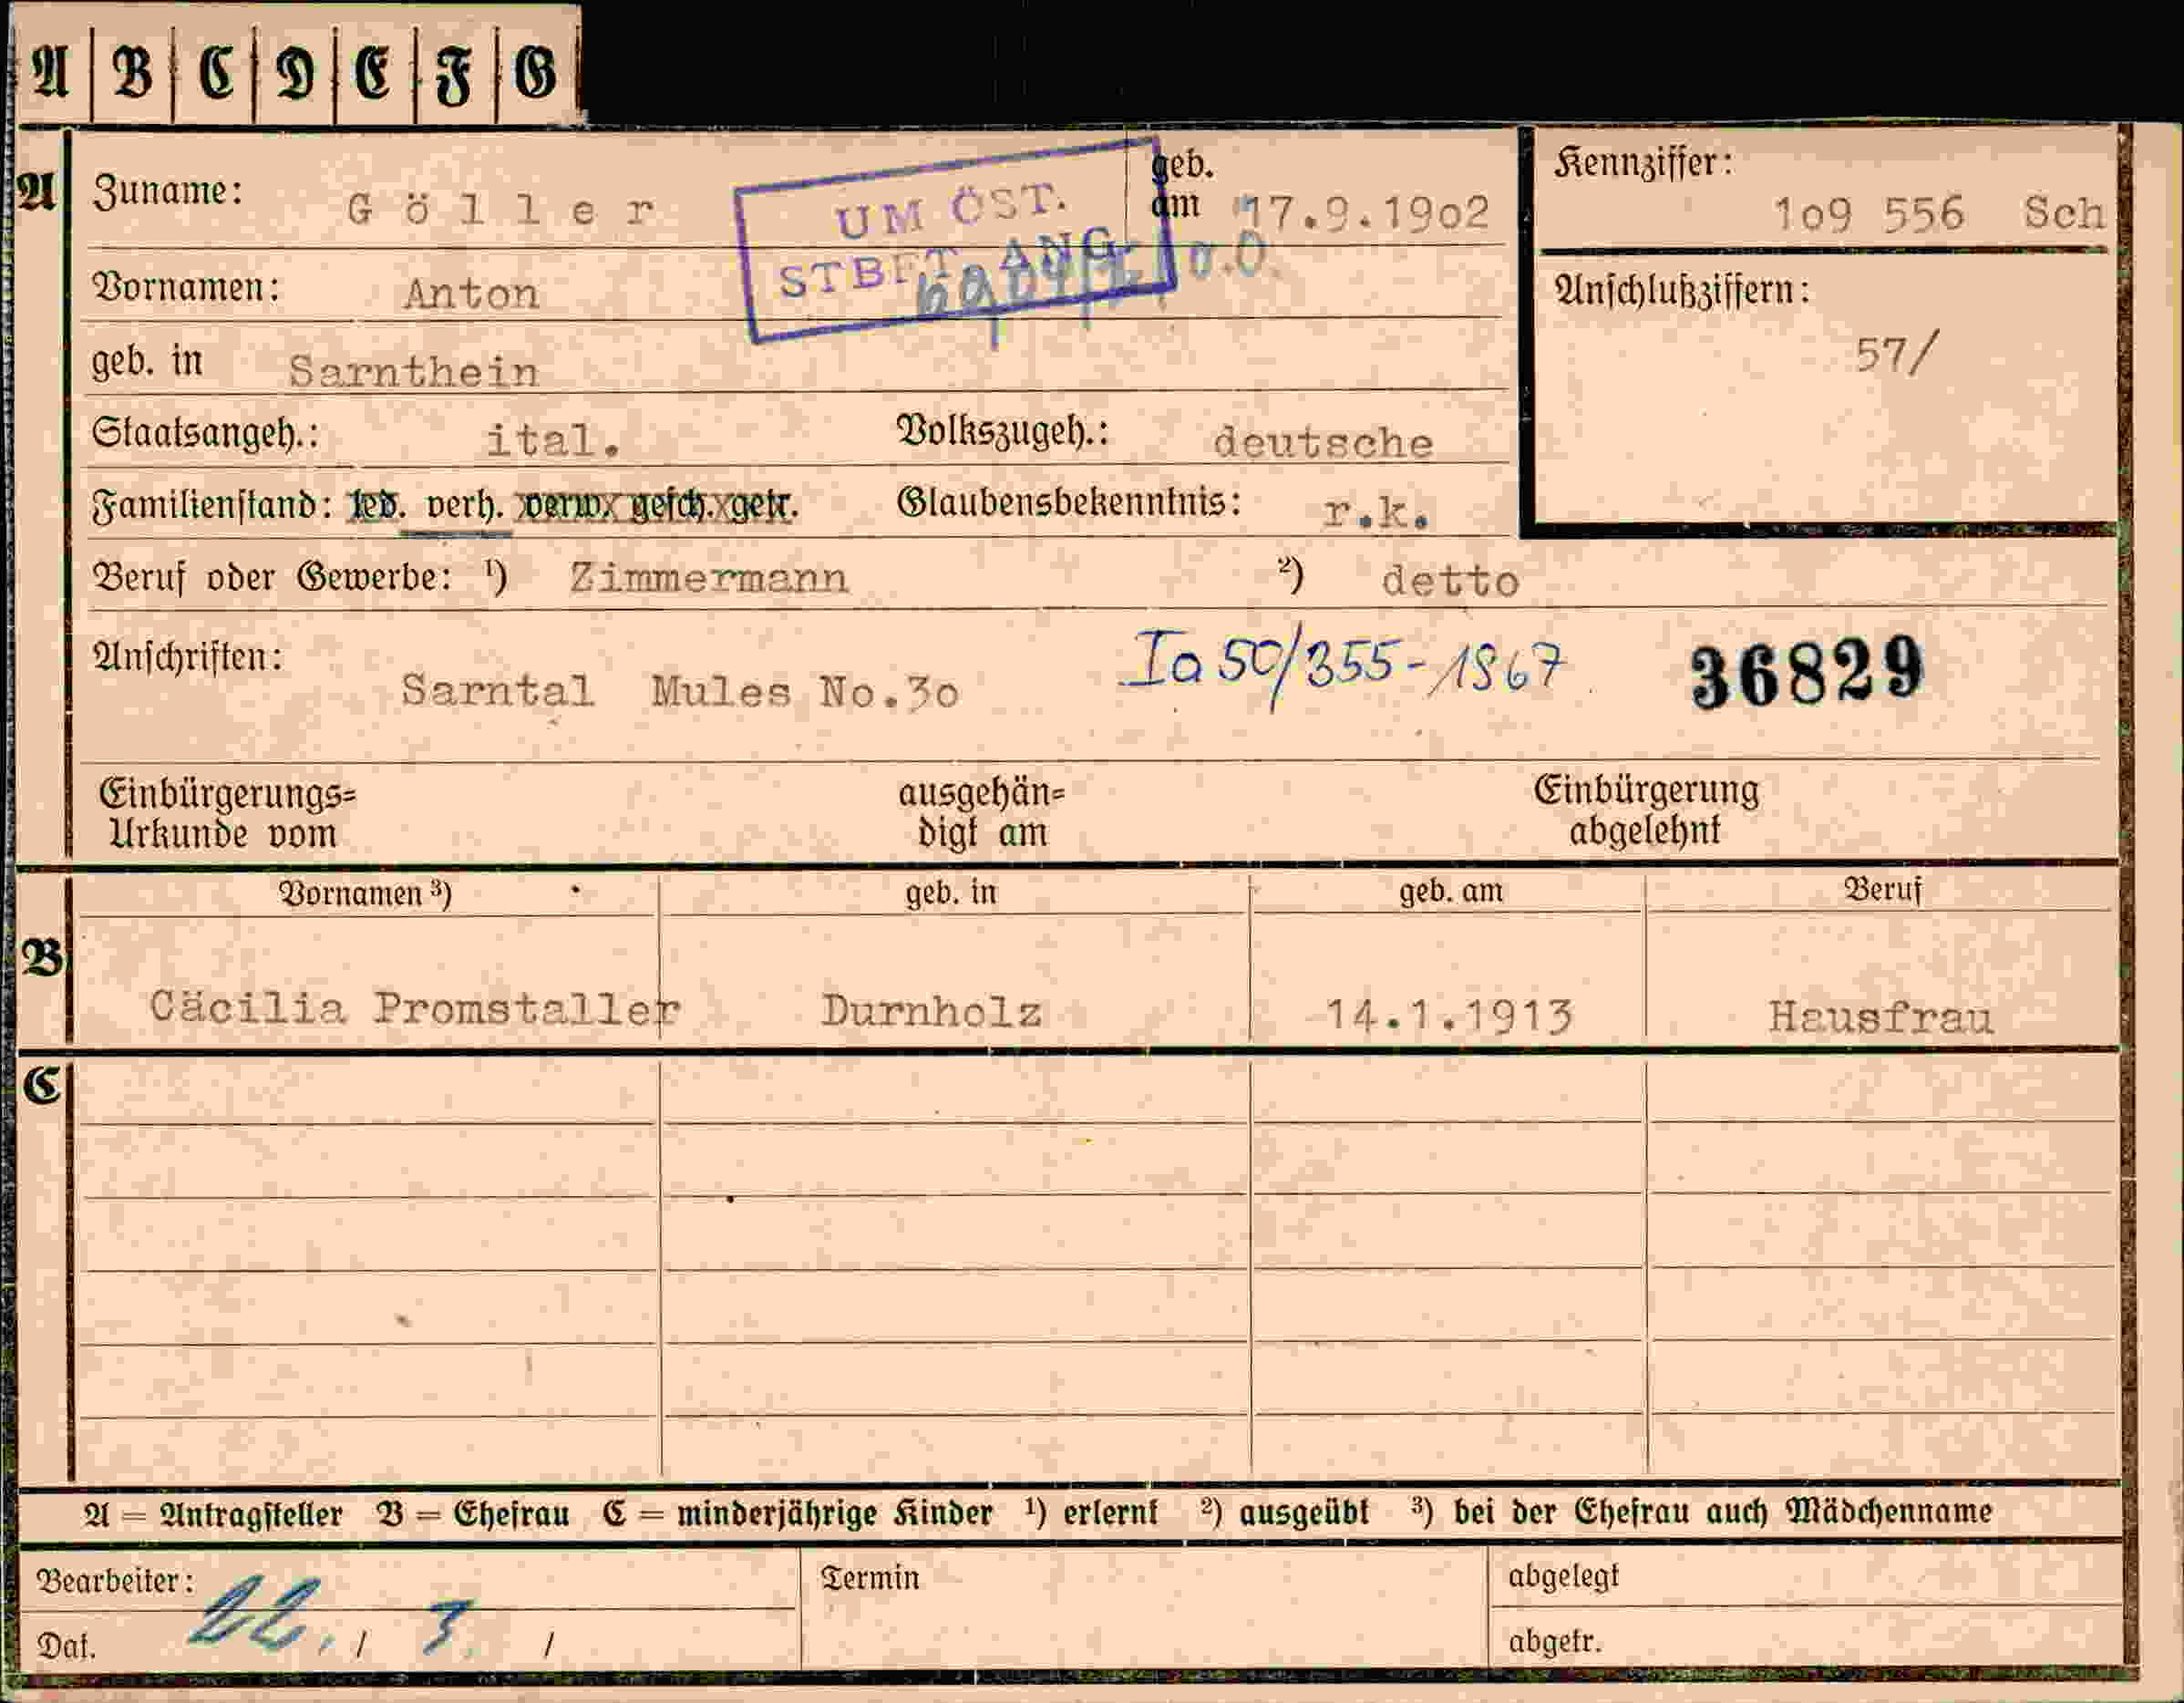 A B C D E F G
A Zuname: Göller geb. am 17.9.1902 Kennziffer: 109 556 Sch
UM ÖST.
STBET. ANG.
Vornamen: Anton
Anschlußziffern: 57/
geb. in Sarnthein
Staatsangeh.: ital. Volkszugeh.: deutsche
Familienstand: led. verh. verw. gesch. getr. Glaubensbekenntnis: r.k.
Beruf oder Gewerbe: ¹) Zimmermann ²) detto
Anschriften: Sarntal Mules No.30 Ia 50/355-1867 36829
Einbürgerungs= Urkunde vom ausgehän= digt am Einbürgerung abgelehnt
Vornamen ³) geb. in geb. am Beruf
B Cäcilia Promstaller Durnholz 14.1.1913 Hausfrau
C
A = Antragsteller B = Ehefrau C = minderjährige Kinder ¹) erlernt ²) ausgeübt ³) bei der Ehefrau auch Mädchenname
Bearbeiter: Termin abgelegt
Dat. 22. / 3. / abgetr.